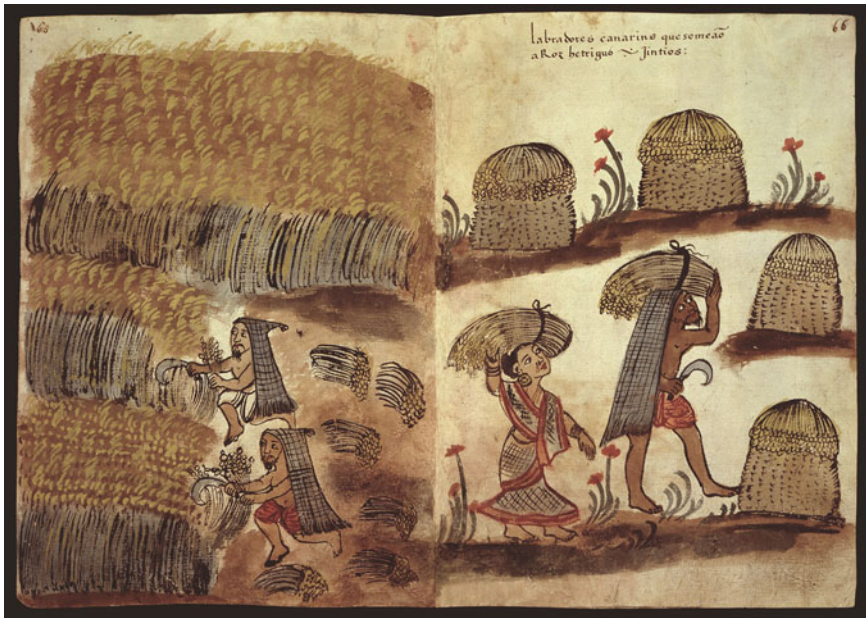 labradores canarins que someaõ
aRoz hetrigus ~ Jintios:
66